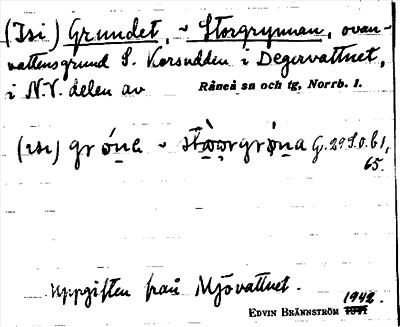 (Isi) Grundet, ~ Storgrynnan, ovan-
vattensgrund S. Korsudden i Degervattnet,
i N.V. delen av Råneå sn och tg, Norrb. l.
(ısı) gr
G. 29 S.o.b 1,
65.
Uppgiften från Mjövattnet.
1942.
EDVIN BRÄNNSTRÖM 1941